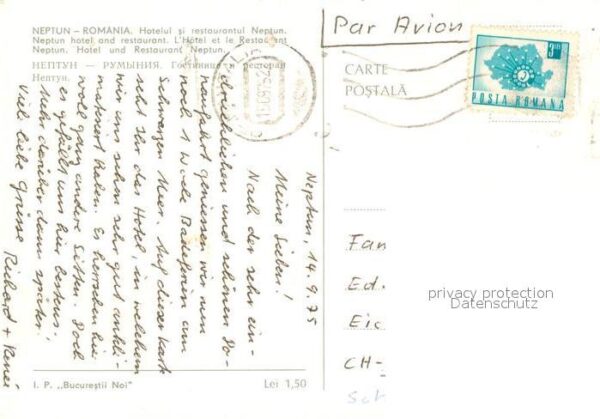 NEPTUN – ROMÂNIA. Hotelul și restaurantul Neptun.
Neptun hotel and restaurant. L'Hôtel et le Restaurant
Neptun. Hotel und Restaurant Neptun.
НЕПТУН — РУМЫНИЯ. Гостиница и ресторан
Нептун.
Par Avion
CARTE
POȘTALĂ
3 LEI
POSTA ROMANA
Neptun, 14.9.75
Meine Lieben!
Nach der sehr ein-
drücklichen und schönen Do-
naufahrt geniessen wir nun
noch 1 Woche Badeferien am
Schwarzen Meer. Auf dieser Karte
seht Ihr das Hotel, in welchem
wir uns schon sehr gut akkli-
matisiert haben. Es herrschen hier
wohl ganz andere Sitten. Doch
es gefällt uns hier bestens.
Mehr darüber dann später.
Viele liebe Grüsse
Richard + Renée
Fam
Ed.
Eic
CH-
privacy protection
Datenschutz
I. P. „Bucureștii Noi"
Lei 1,50